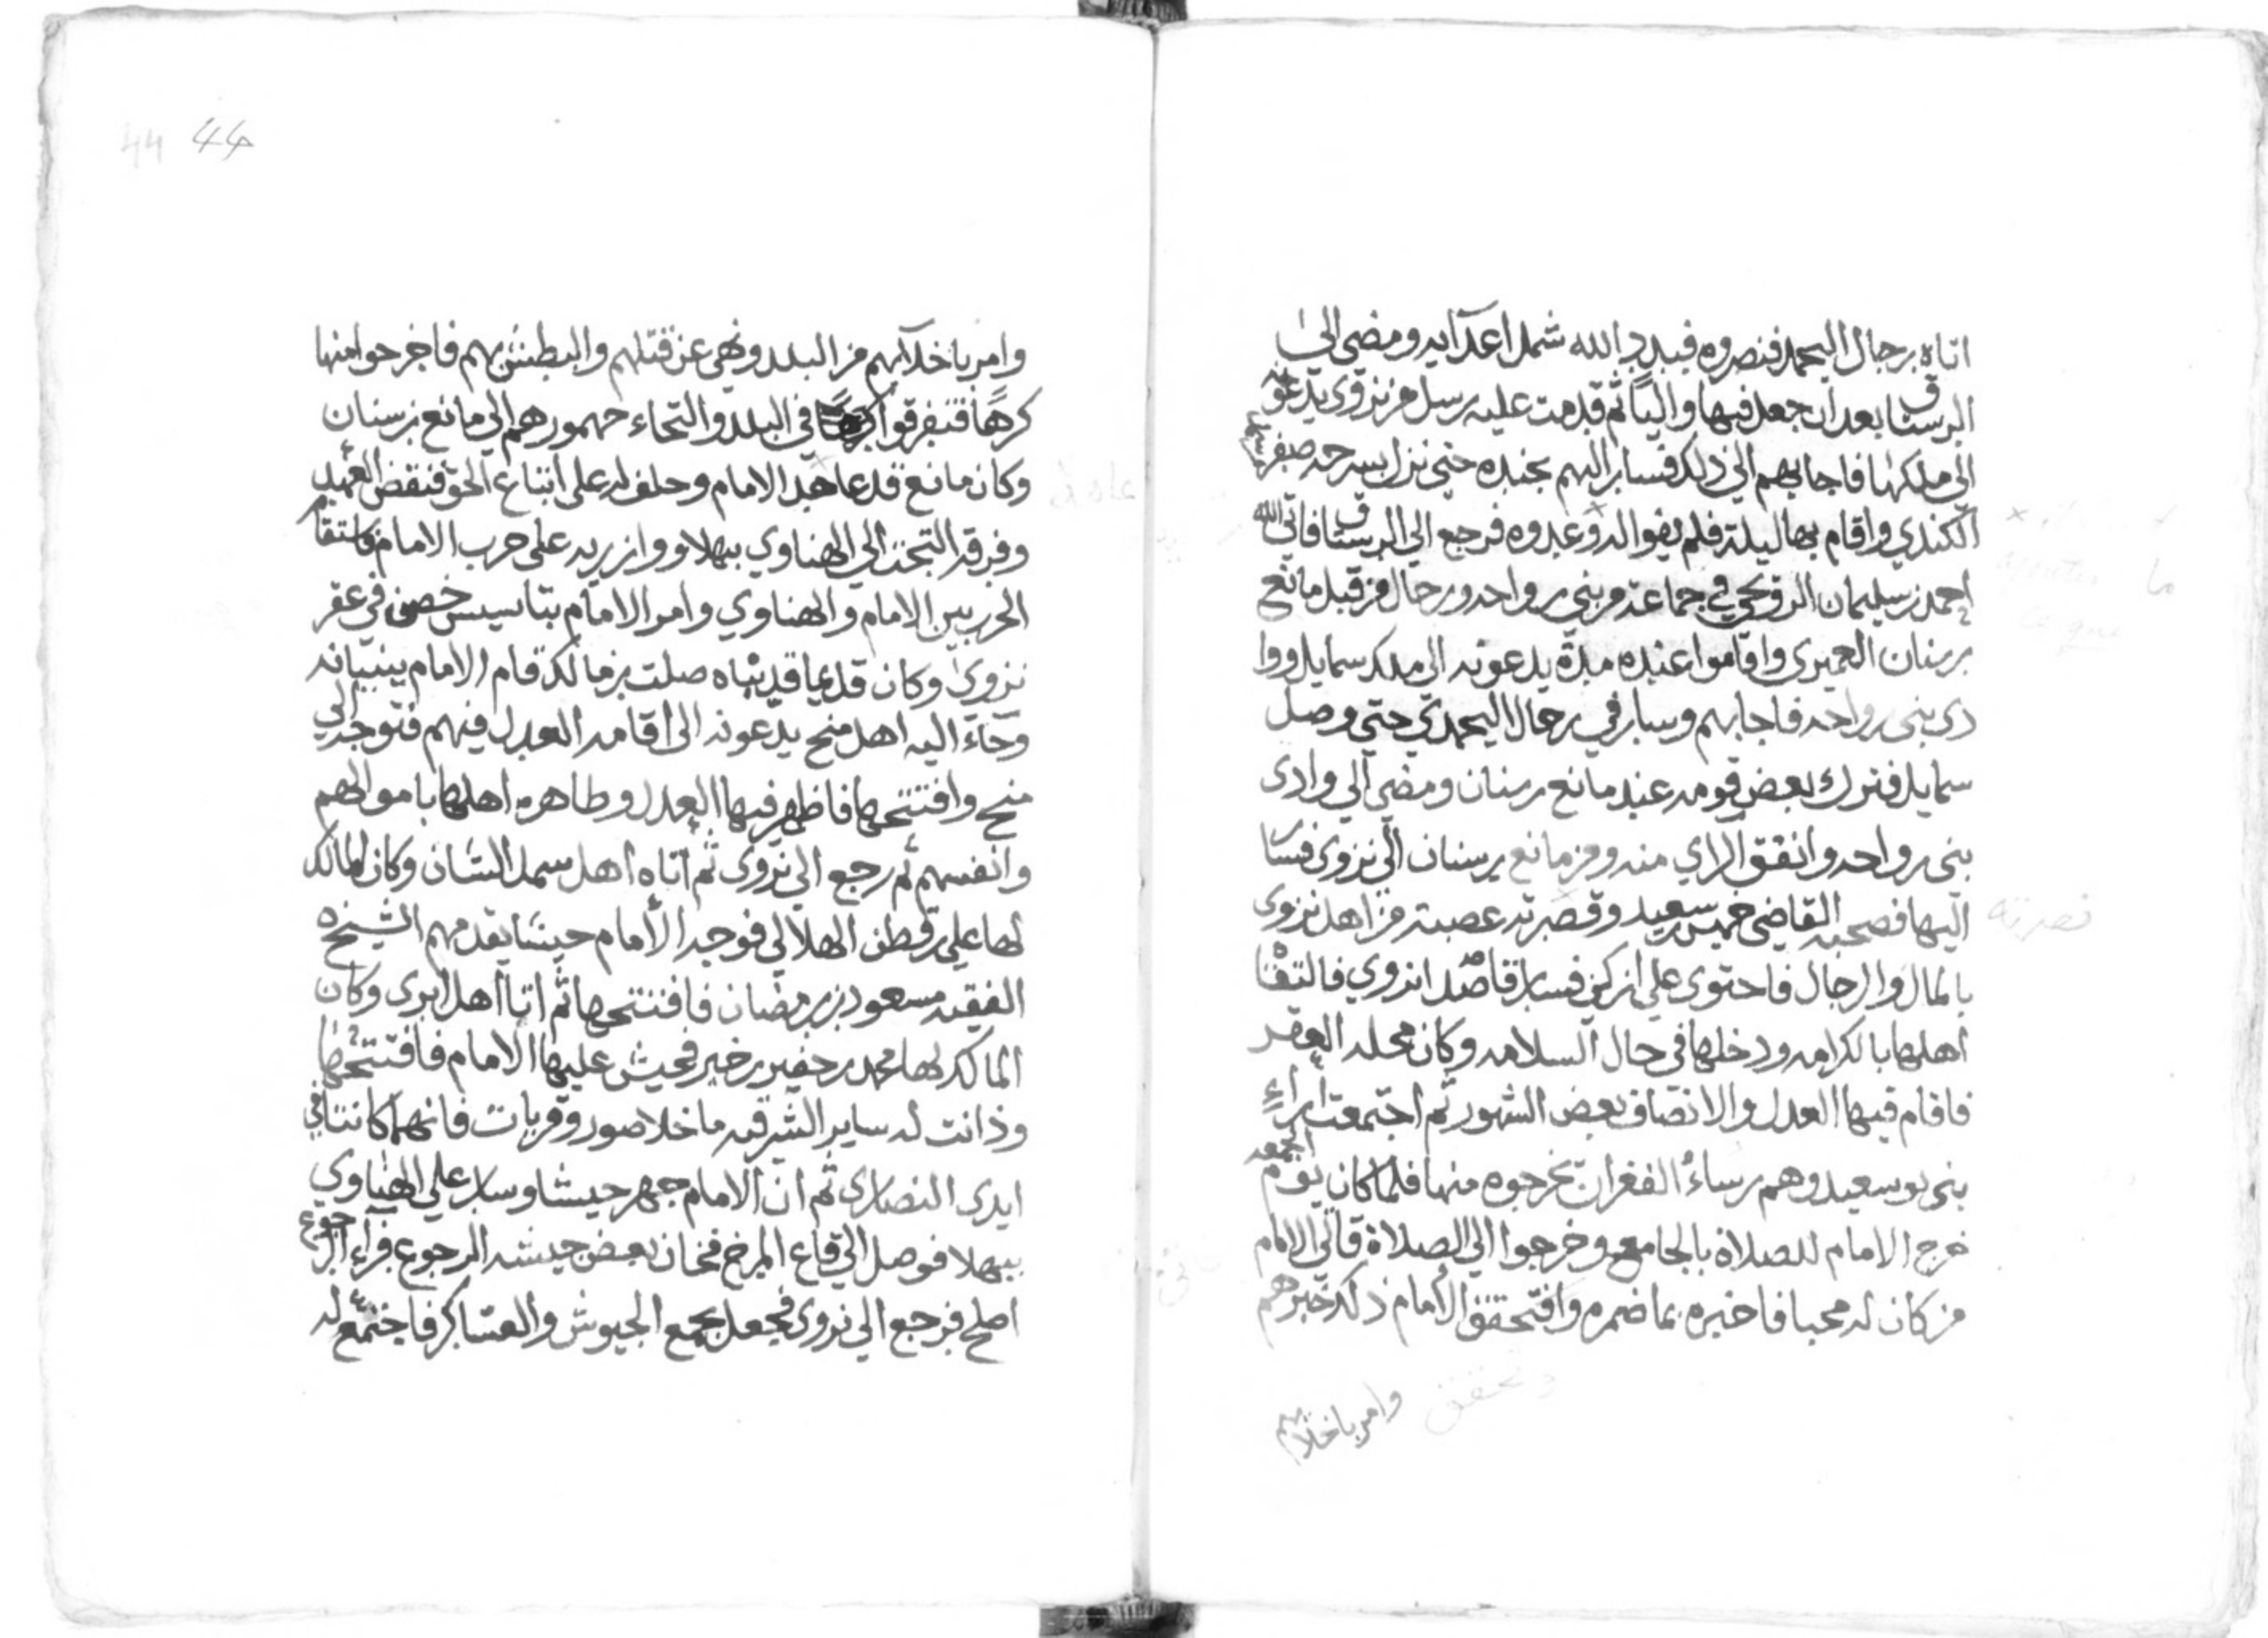 اتاه برجال اليحمد فنصروه فبدد الله شمل اعدآيه ومضي الي
الرستاق بعد ان جعل فيها والياً ثم قدمت عليه رسل من نزوى يدعونه
الى ملكها فاجابهم الى ذلك فسار اليهم بجنده حتى نزل بسرحه صفر
الكندي واقام بها ليلة فلم يفوا له وعدوه فرجع الي الرستاق فاتي الله
احمد بن سليمان الرويحي في جماعة من بني رواحه ورجال من قبل مانع
بن سنان العميري واقاموا عنده مدة يدعونه الى ملك سمايل ووا
دى بنى رواحه فاجابهم وسار في رجال اليحمدي حتى وصل
سمايل فترك بعض قومه عند مانع بن سنان ومضي الي وادى
بنى رواحه واتفق الراي منه ومن مانع بن سنان الى نزوى فسار
اليها فصحبه القاضي خميس بن سعيد وقصرته عصبة من اهل نزوى
بالمال والرجال فاحتوى على ازكي فسار قاصدا نزوي فالتقتا
اهلها بالكرامه ودخلها في حال السلامه وكان محله العقر
فاقام فيها العدل والانصاف بعض الشهور ثم اجتمعت اراء
بنى بوسعيد وهم رساء الفغران يخرجوه منها فلما كان يوم الجمعه
خرج الامام للصلاة بالجامع وخرجوا الى الصلاة فاتى الامام
من كان له محبا فاخبره بما ضمره وافتحقق الأمام ذلك خبرهم
وامر باخلآيهم
وتحقق
نصرته
44 44
وامر باخلآيهم من البلد ونهي عن قتلهم والبطش بهم فاخرجوا منها
كرهاً فتفرقوا في البلد والتجاء جمهورهم الي مانع بن سنان
وكان مانع قد عاهد الامام وحلف له على اتباع الحق فنقض العهد
وفرقة التجت الي الهناوي ببهلا ووازريه على حرب الامام فاستقام
الحرب بين الامام والهناوي وامر الامام بتاسيس حصن في عقر
نزوي وكان قديما قد بناه صلت بن مالك قام الامام ببنيانه
وجآء اليه اهل منح يدعونه الى اقامه العدل فيهم فتوجه الي
منح وافتتحها فاظهر فيها العدل وطاهره اهلها باموالهم
وانفسهم ثم رجع الي نزوى ثم اتاه اهل سمد الشان وكان المالك
لها علي بن قطن الهلالي فوجه الأمام جيشا يقدمهم الشيخ
الفقيه مسعود بن رمضان فافتتحها ثم اتا اهل ابرى وكان
المالك لها محمد بن جفير بن خير فجيش عليها الامام فافتتحها
وذانت له ساير الشرقيه ما خلا صور وقريات فانهما كانتا في
ايدى النصارى ثم ان الامام جهر جيشا وسار على الهناوي
ببهلا فوصل الي قاع المرخ فخان بعض جيشه الرجوع فراء الرجوع
اصلح فرجع الي نزوى فجعل يجمع الجيوش والعساكر فاجتمع له